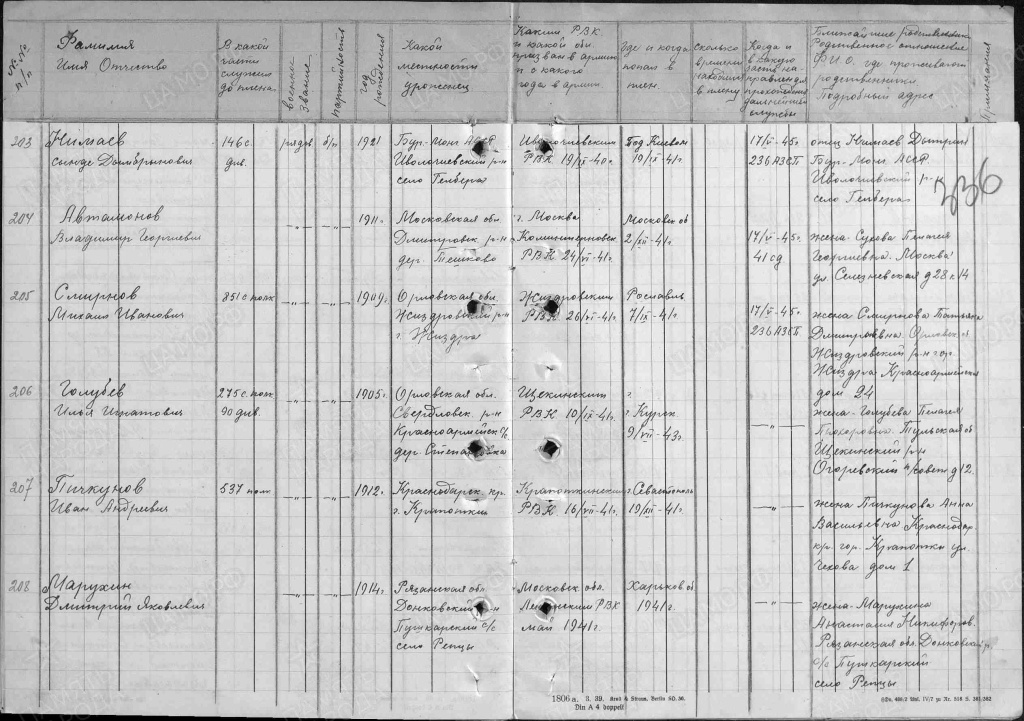 №№ п/п
Фамилия
Имя Отчество
В какой
части
служил
до плена.
военное
звание.
партийность
год
рождения
Какой
местности
уроженец
Каким РВК
и какой обл.
призван в армию
и с какого
года в армии
Где и когда
попал в
плен.
Сколько
времени
находился
в плену
Когда и
в какую
часть на-
правлен для
прохождения
дальнейшей
службы
Ближайшие родственники
Родственное отношение
Ф.И.О. где проживают
родственники
Подробный адрес
Примечания
203 Нимаев 146 с. рядов б/п 1921 Бур-Монг АССР Иволгинским Под Киевом 17/V-45г. отец Нимаев Дымбрил
Дымбрынович див. Иволгинский р-н РВК 19/IX-40г. 19/IX-41г 236 АЗСП Бур-Монг АССР
село Гелбера Иволгинский р-н
село Гелбера
236
204 Автамонов -„- -„- 1911г. Московская обл. г. Москва Московск об
Владимир Георгиевич Дмитровск. р-н Коминтерновск. 2/XII-41г 17/V-45г жена-Сухова Пелагея
дер. Пешково РВК 24/VI-41г. 41 сд Георгиевна. Москва
ул. Селезневская д 28 к 14
205 Смирнов 851 с полк -„- -„- 1909г. Орловская обл. Жиздровским Рославль
Михаил Иванович Жиздровский р-н РВК 26/VI-41г. 7/IX-41г 17/V-45г жена Смирнова Татьяна
г. Жиздра 236 АЗСП Дмитровна Орловск. об
Жиздровский р-н гор.
Жиздра Красноармейская
дом 24
206 Голубев 275 с. полк -„- -„- 1905г. Орловская обл. Щекинским
Илья Игнатович 90 див. Свердловск. р-н РВК 10/IX-41г. г Курск -„- жена-Голубева Пелагея
Красноармейск с/с 9/VII-43г. Тульская об
дер. Степановка Щекинский р-н
Огоревский п/совет д 12.
207 Пичкунов 537 полк -„- -„- 1912г. Краснодарск. кр. Кропоткинским г. Севастополь
Иван Андреевич г. Кропоткин РВК 16/VII-41г. 19/XII-41г -„- жена Пикунова Анна
Васильевна Краснодар.
кр. гор. Кропоткин ул.
Чехова дом 1
208 Марухин -„- -„- 1914г. Рязанская обл. Московск обл. Харьков об
Дмитрий Яковлевич Донковский р-н Ленинским РВК 1941г. -„- жена-Марухина
Пушкарский с/с май 1941г. Анастасия Никифоров.
село Репцы Рязанская обл. Донковский р.
с/с Пушкарский
село Репцы
1806 a. 3. 39.
Din A 4 doppelt
ЦАМО.РФ